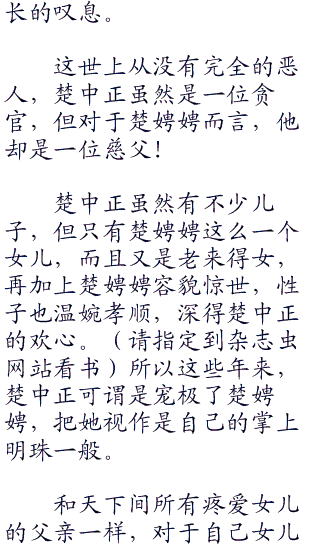 长的叹息。
这世上从没有完全的恶
人，楚中正虽然是一位贪
官，但对于楚娉娉而言，他
却是一位慈父！
楚中正虽然有不少儿
子，但只有楚娉娉这么一个
女儿，而且又是老来得女，
再加上楚娉娉容貌惊世，性
子也温婉孝顺，深得楚中正
的欢心。（请指定到杂志虫
网站看书）所以这些年来，
楚中正可谓是宠极了楚娉
娉，把她视作是自己的掌上
明珠一般。
和天下间所有疼爱女儿
的父亲一样，对于自己女儿